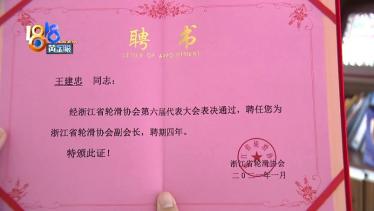 1818
黄金眼
聘书
LETTER OF APPOINTMENT
王建忠 同志：
经浙江省轮滑协会第六届代表大会表决通过，聘任您为
浙江省轮滑协会副会长，聘期四年。
特颁此证！
浙江省轮滑协会
二〇二一年一月